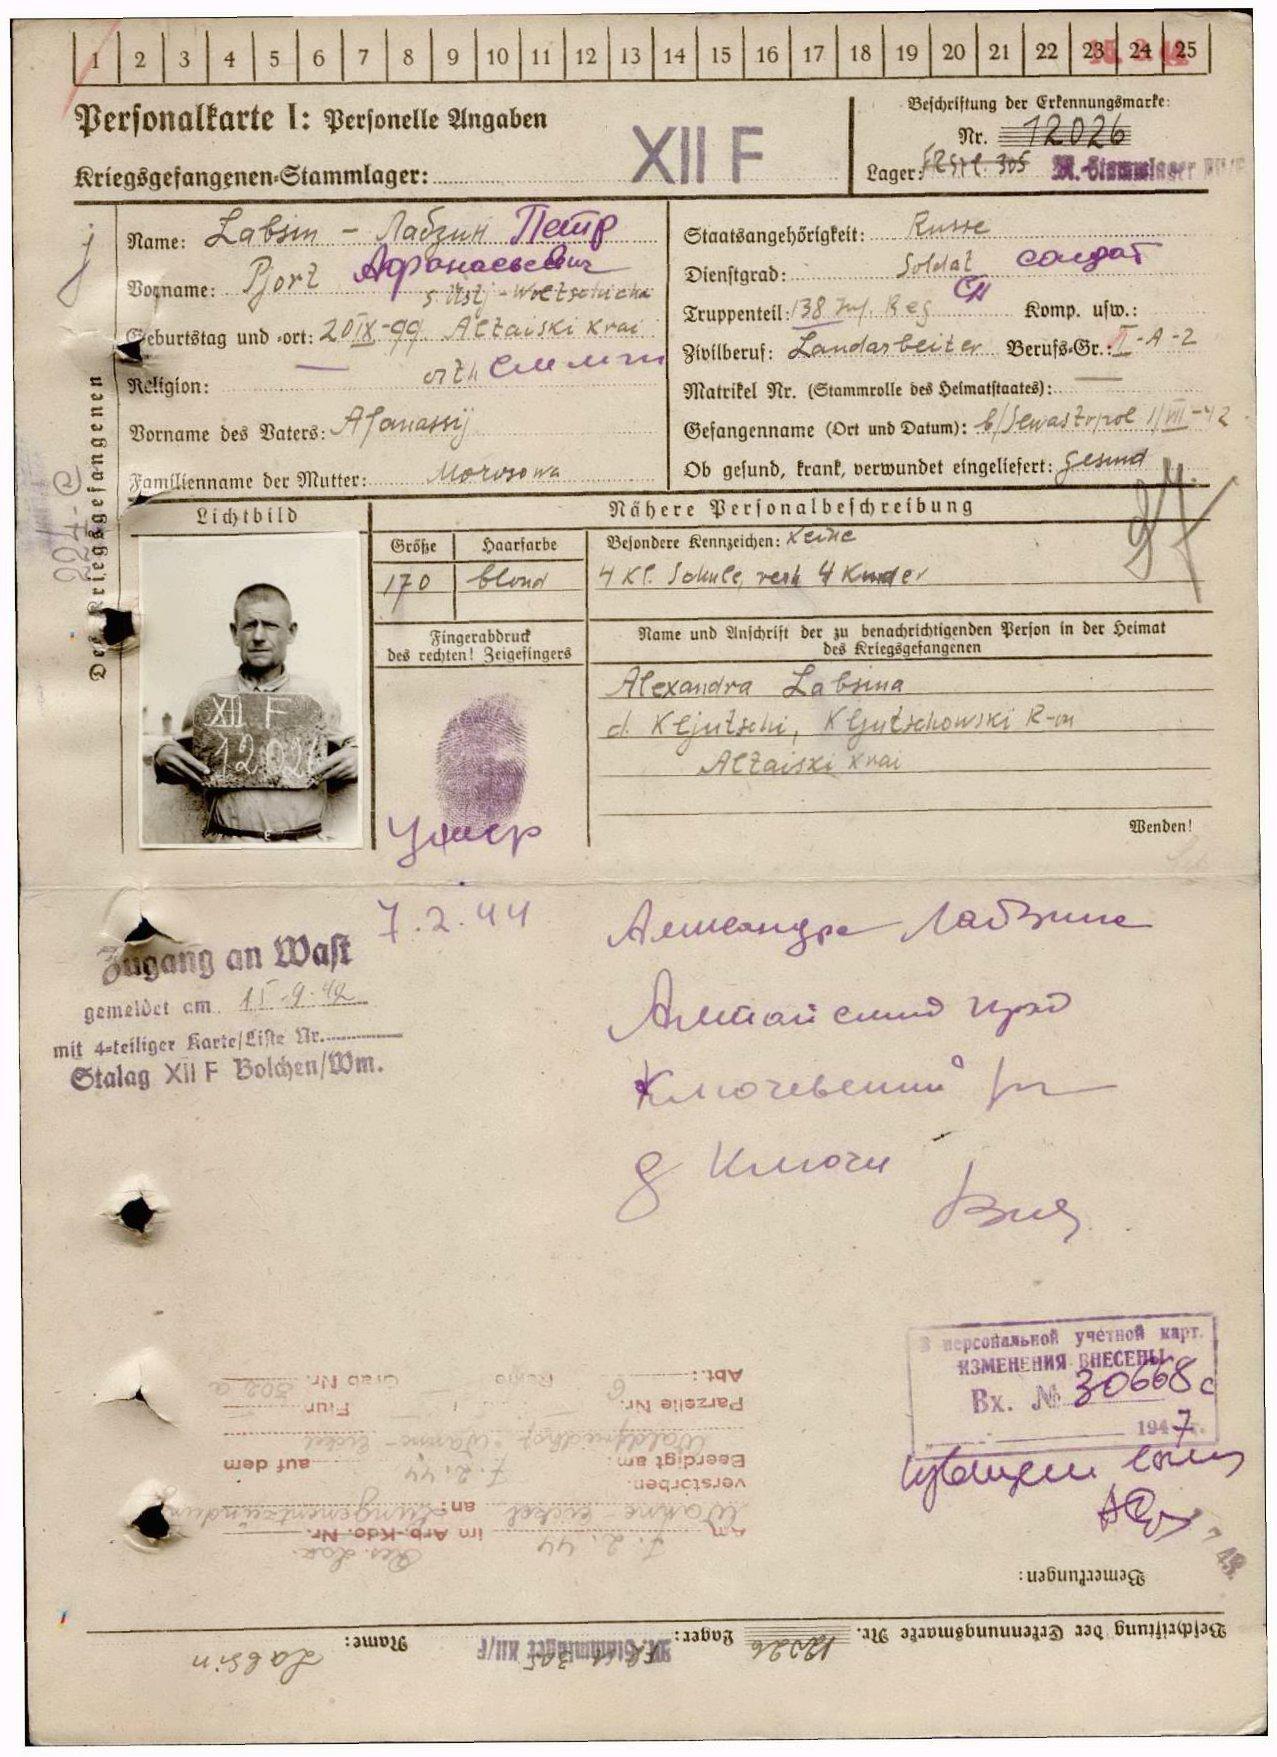 1 2 3 4 5 6 7 8 9 10 11 12 13 14 15 16 17 18 19 20 21 22 23 24 25
Personalkarte I: Personelle Angaben
Kriegsgefangenen-Stammlager: XII F
Beschriftung der Erkennungsmarke:
Nr. 12026
Lager: 305 M.-Stammlager XII/F
Des Kriegsgefangenen
Name: Labsin – Лабзин Петр
Vorname: Pjort Афанасьевич
Geburtstag und -ort: 20 IX-99 Altaiski Krai
Religion: —
Vorname des Vaters: Afanassij
Familienname der Mutter: Morosowa
Staatsangehörigkeit: Russe
Dienstgrad: Soldat солдат
Truppenteil: 138 Inf. Reg СП Komp. usw.:
Zivilberuf: Landarbeiter Berufs-Gr.: II-A-2
Matrikel Nr. (Stammrolle des Heimatstaates): —
Gefangenname (Ort und Datum): b/Sewastopol 1/VII-42
Ob gesund, krank, verwundet eingeliefert: gesund
Lichtbild
Nähere Personalbeschreibung
Größe Haarfarbe
170 blond
Besondere Kennzeichen: Keine
4 Kl. Schule, verh 4 Kinder
Fingerabdruck
des rechten! Zeigefingers
Name und Anschrift der zu benachrichtigenden Person in der Heimat
des Kriegsgefangenen
Alexandra Labsina
d. Kljutschi, Kljutschowski R-on
Altaiski Krai
XII F
12026
Умер
7.2.44
Wenden!
Zugang an Wast
gemeldet am 15-9-42
mit 4-teiliger Karte/Liste Nr.
Stalag XII F Bolchen/Wm.
Александра Лабзина
Алтайский край
Ключевский р-н
д Ключи
В персональной учетной карт.
ИЗМЕНЕНИЯ ВНЕСЕНЫ
Вх. № 30668с
1947г.
Beschriftung der Erkennungsmarke Nr. 12026 Lager: M.-Stammlager XII/F 305 Name: Labsin
Bemerkungen:
Res. Laz.
Am 7.2.44 im Arb.-Kdo. Nr.
Wanne-Eickel an: Lungenentzündung
verstorben.
Beerdigt am: 7.2.44 auf dem
Waldfriedhof Wanne-Eickel
Parzelle Nr. 6 Flur
Abt.: Reihe Grab Nr. 802 a